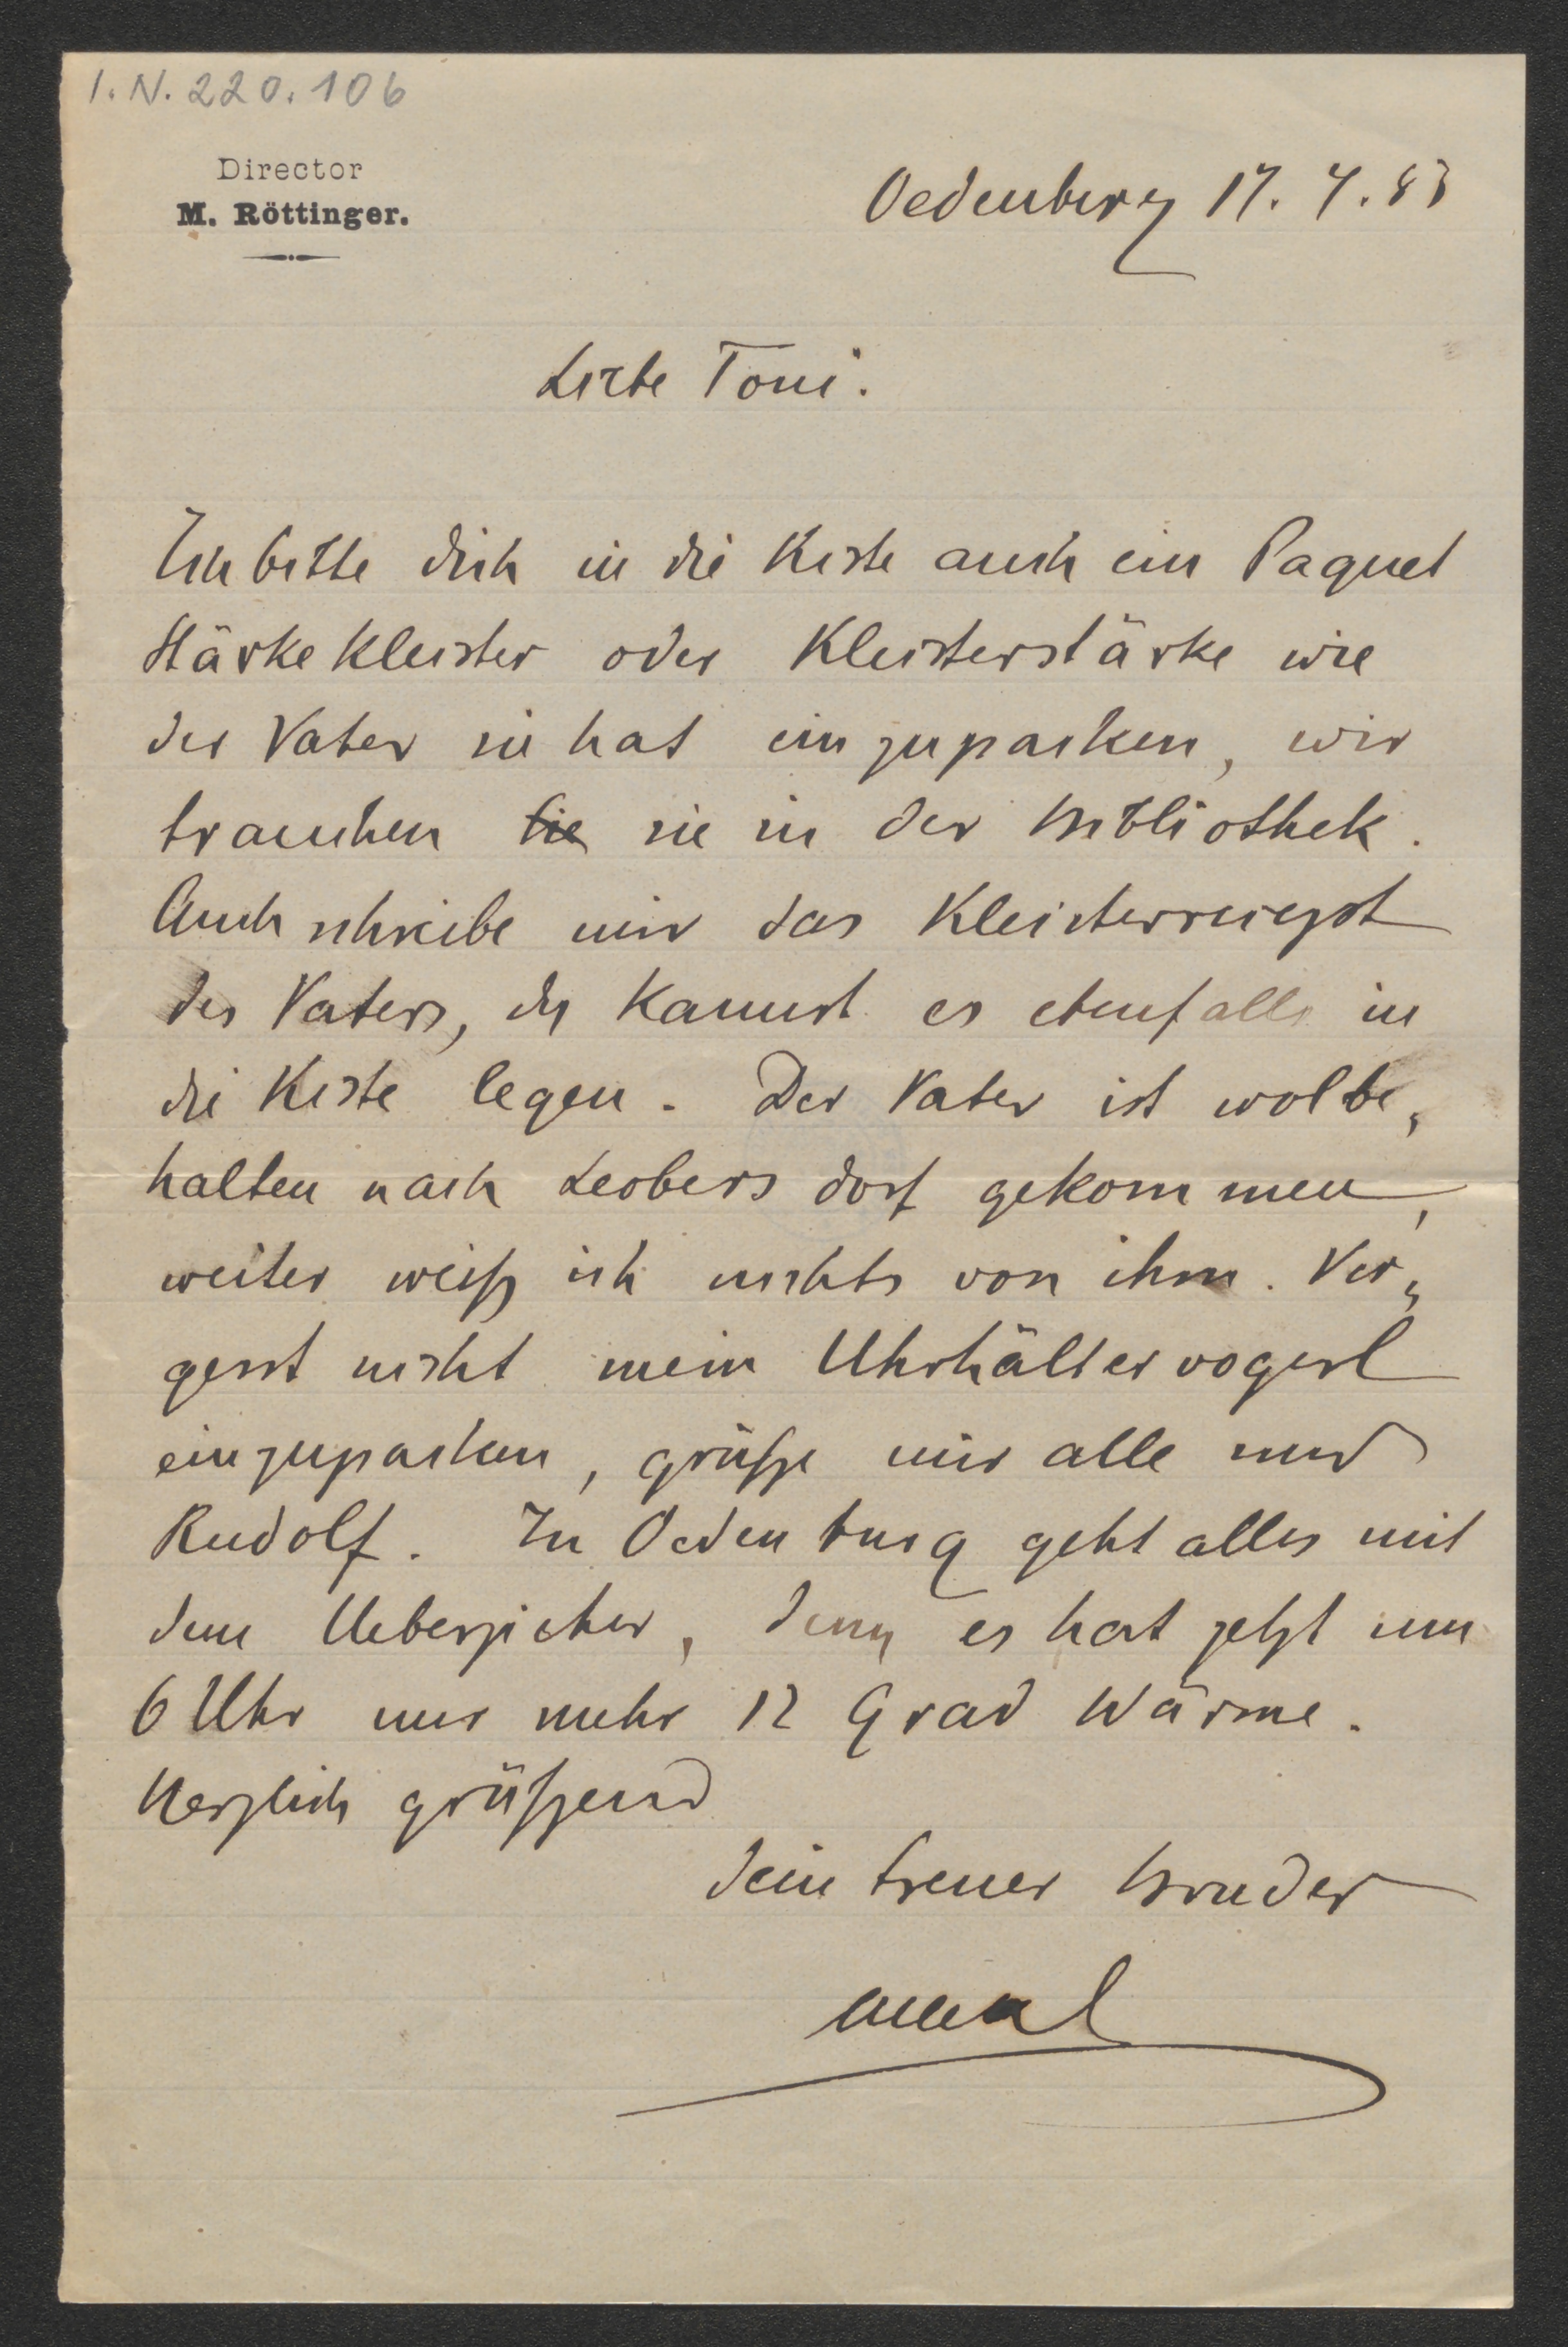 I.N. 220.106
Director
M. Röttinger.
Oedenburg 17. 7. 83
Liebe Toni.
Ich bitte dich in die Kiste auch ein Paquet
Stärkekleister oder Kleisterstärke wie
der Vater sie hat einzupacken, wir
brauchen sie in der Bibliothek.
Auch schreibe mir das Kleisterrecept
des Vaters, du kannst es ebenfalls in
die Kiste legen. Der Vater ist wolbe„
halten nach Leobersdorf gekommen,
weiter weiß ich nichts von ihm. Ver„
gesst nicht mein Uhrhältervogerl
einzupacken, grüße mir alle und
Rudolf. In Oedenburg geht alles mit
dem Ueberzieher, denn es hat jetzt um
6 Uhr nur mehr 12 Grad Wärme.
Herzlich grüßend
dein treuer Bruder